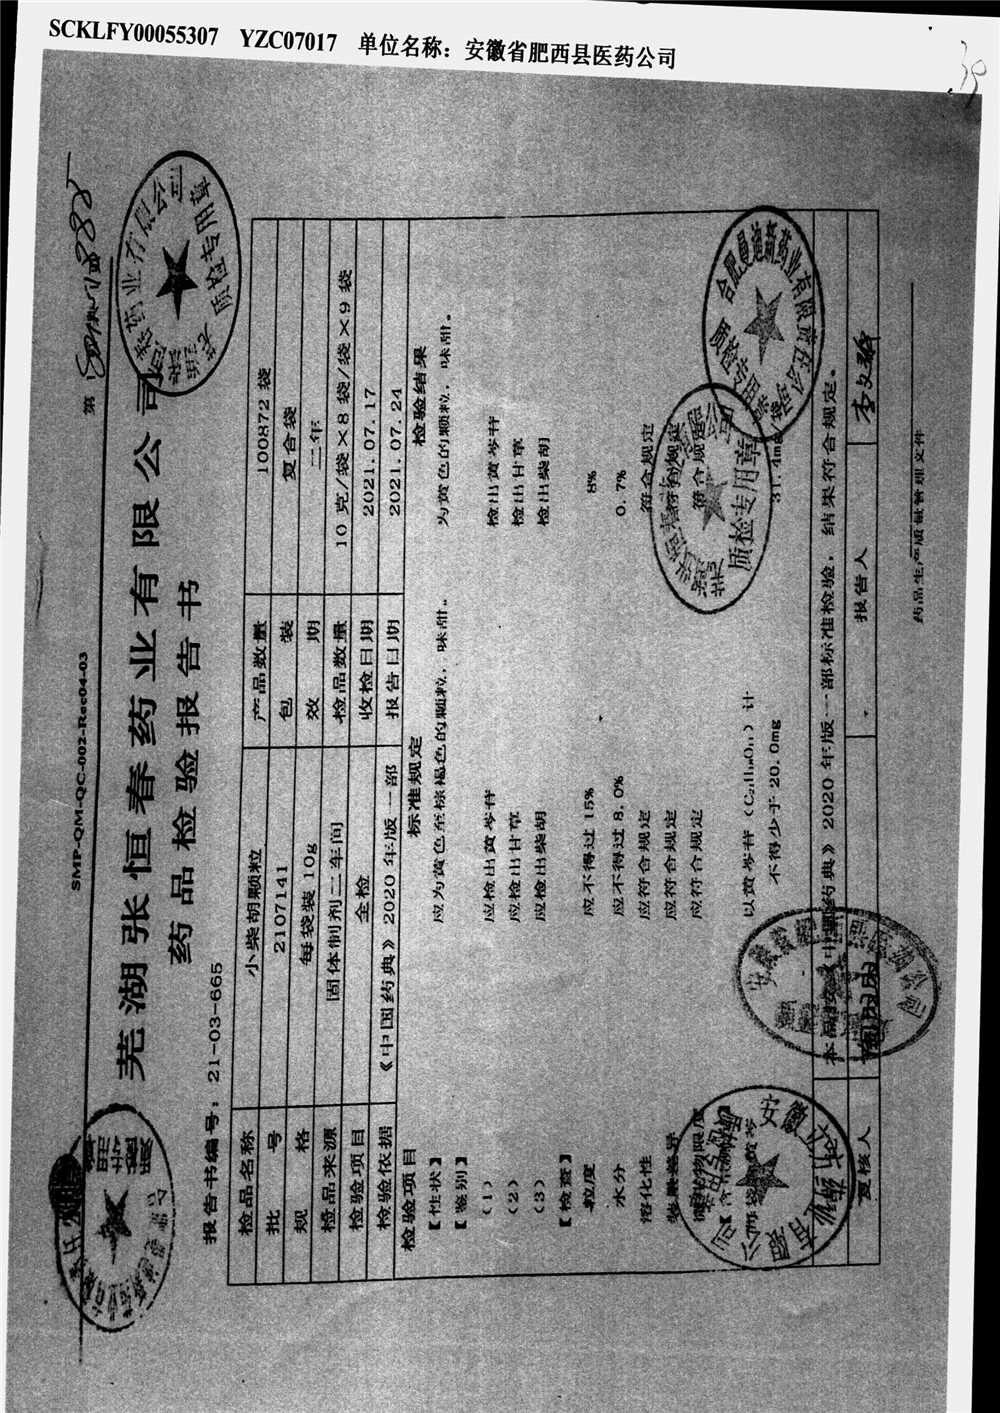 SCKLFY00055307 YZC07017 单位名称：安徽省肥西县医药公司
SMP-QM-QC-002-Rec04-03
第
芜湖张恒春药业有限公司
药品检验报告书
报告书编号：21-03-665
检品名称 小柴胡颗粒 产品数量 100872 袋
批 号 2107141 包 装 复合袋
规 格 每袋装 10g 效 期 二年
检品来源 固体制剂二车间 检品数量 10 克/袋×8 袋/袋×9 袋
检验项目 全检 收检日期 2021.07.17
检验依据 《中国药典》2020 年版一部 报告日期 2021.07.24
检验项目 标准规定 检验结果
【性状】 应为黄色至棕褐色的颗粒，味甜。 为黄色的颗粒，味甜。
【鉴别】
（1） 应检出黄芩苷 检出黄芩苷
（2） 应检出甘草 检出甘草
（3） 应检出柴胡 检出柴胡
【检查】
粒度 应不得过 15% 8%
水分 应不得过 8.0% 0.7%
溶化性 应符合规定 符合规定
装量差异 应符合规定 符合规定
微生物限度 应符合规定 符合规定
以黄芩苷（C₂₁H₁₈O₁₁）计
不得少于 20.0mg 31.4mg/袋
本品按《中国药典》2020 年版一部标准检验，结果符合规定。
复核人 报告人
药品生产质量管理文件
质检专用章
合肥曼迪新药业有限责任公司
质检专用章
质检专用章